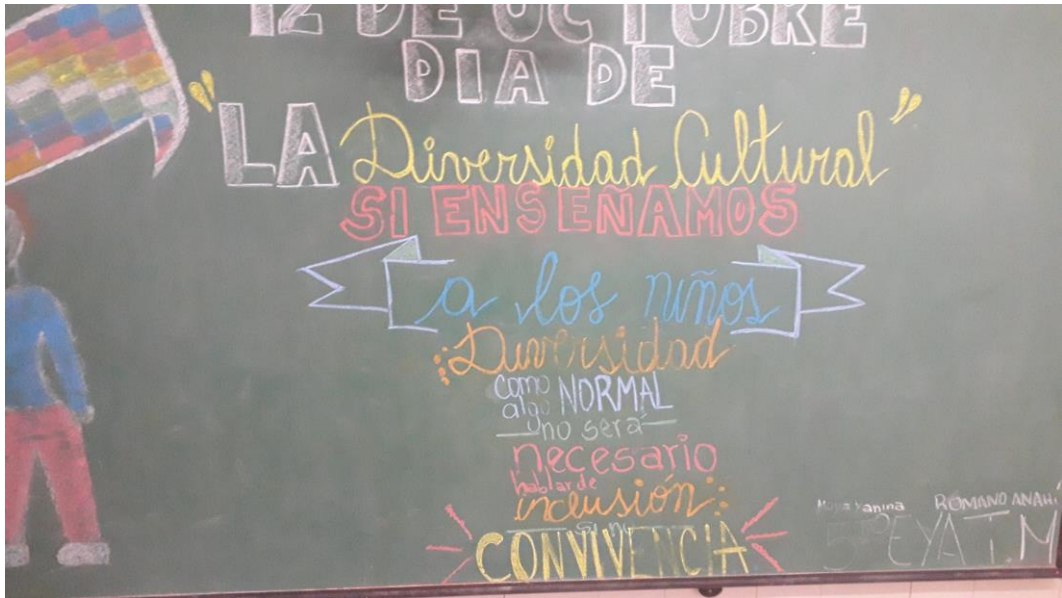 12 DE OCTUBRE
DIA DE
"LA Diversidad Cultural"
SI ENSEÑAMOS
a los niños
Diversidad
como
algo NORMAL
y no será
necesario
hablar de
inclusión
si no
CONVIVENCIA
Yanina ROMANO ANAHÍ
5º EYA T.M